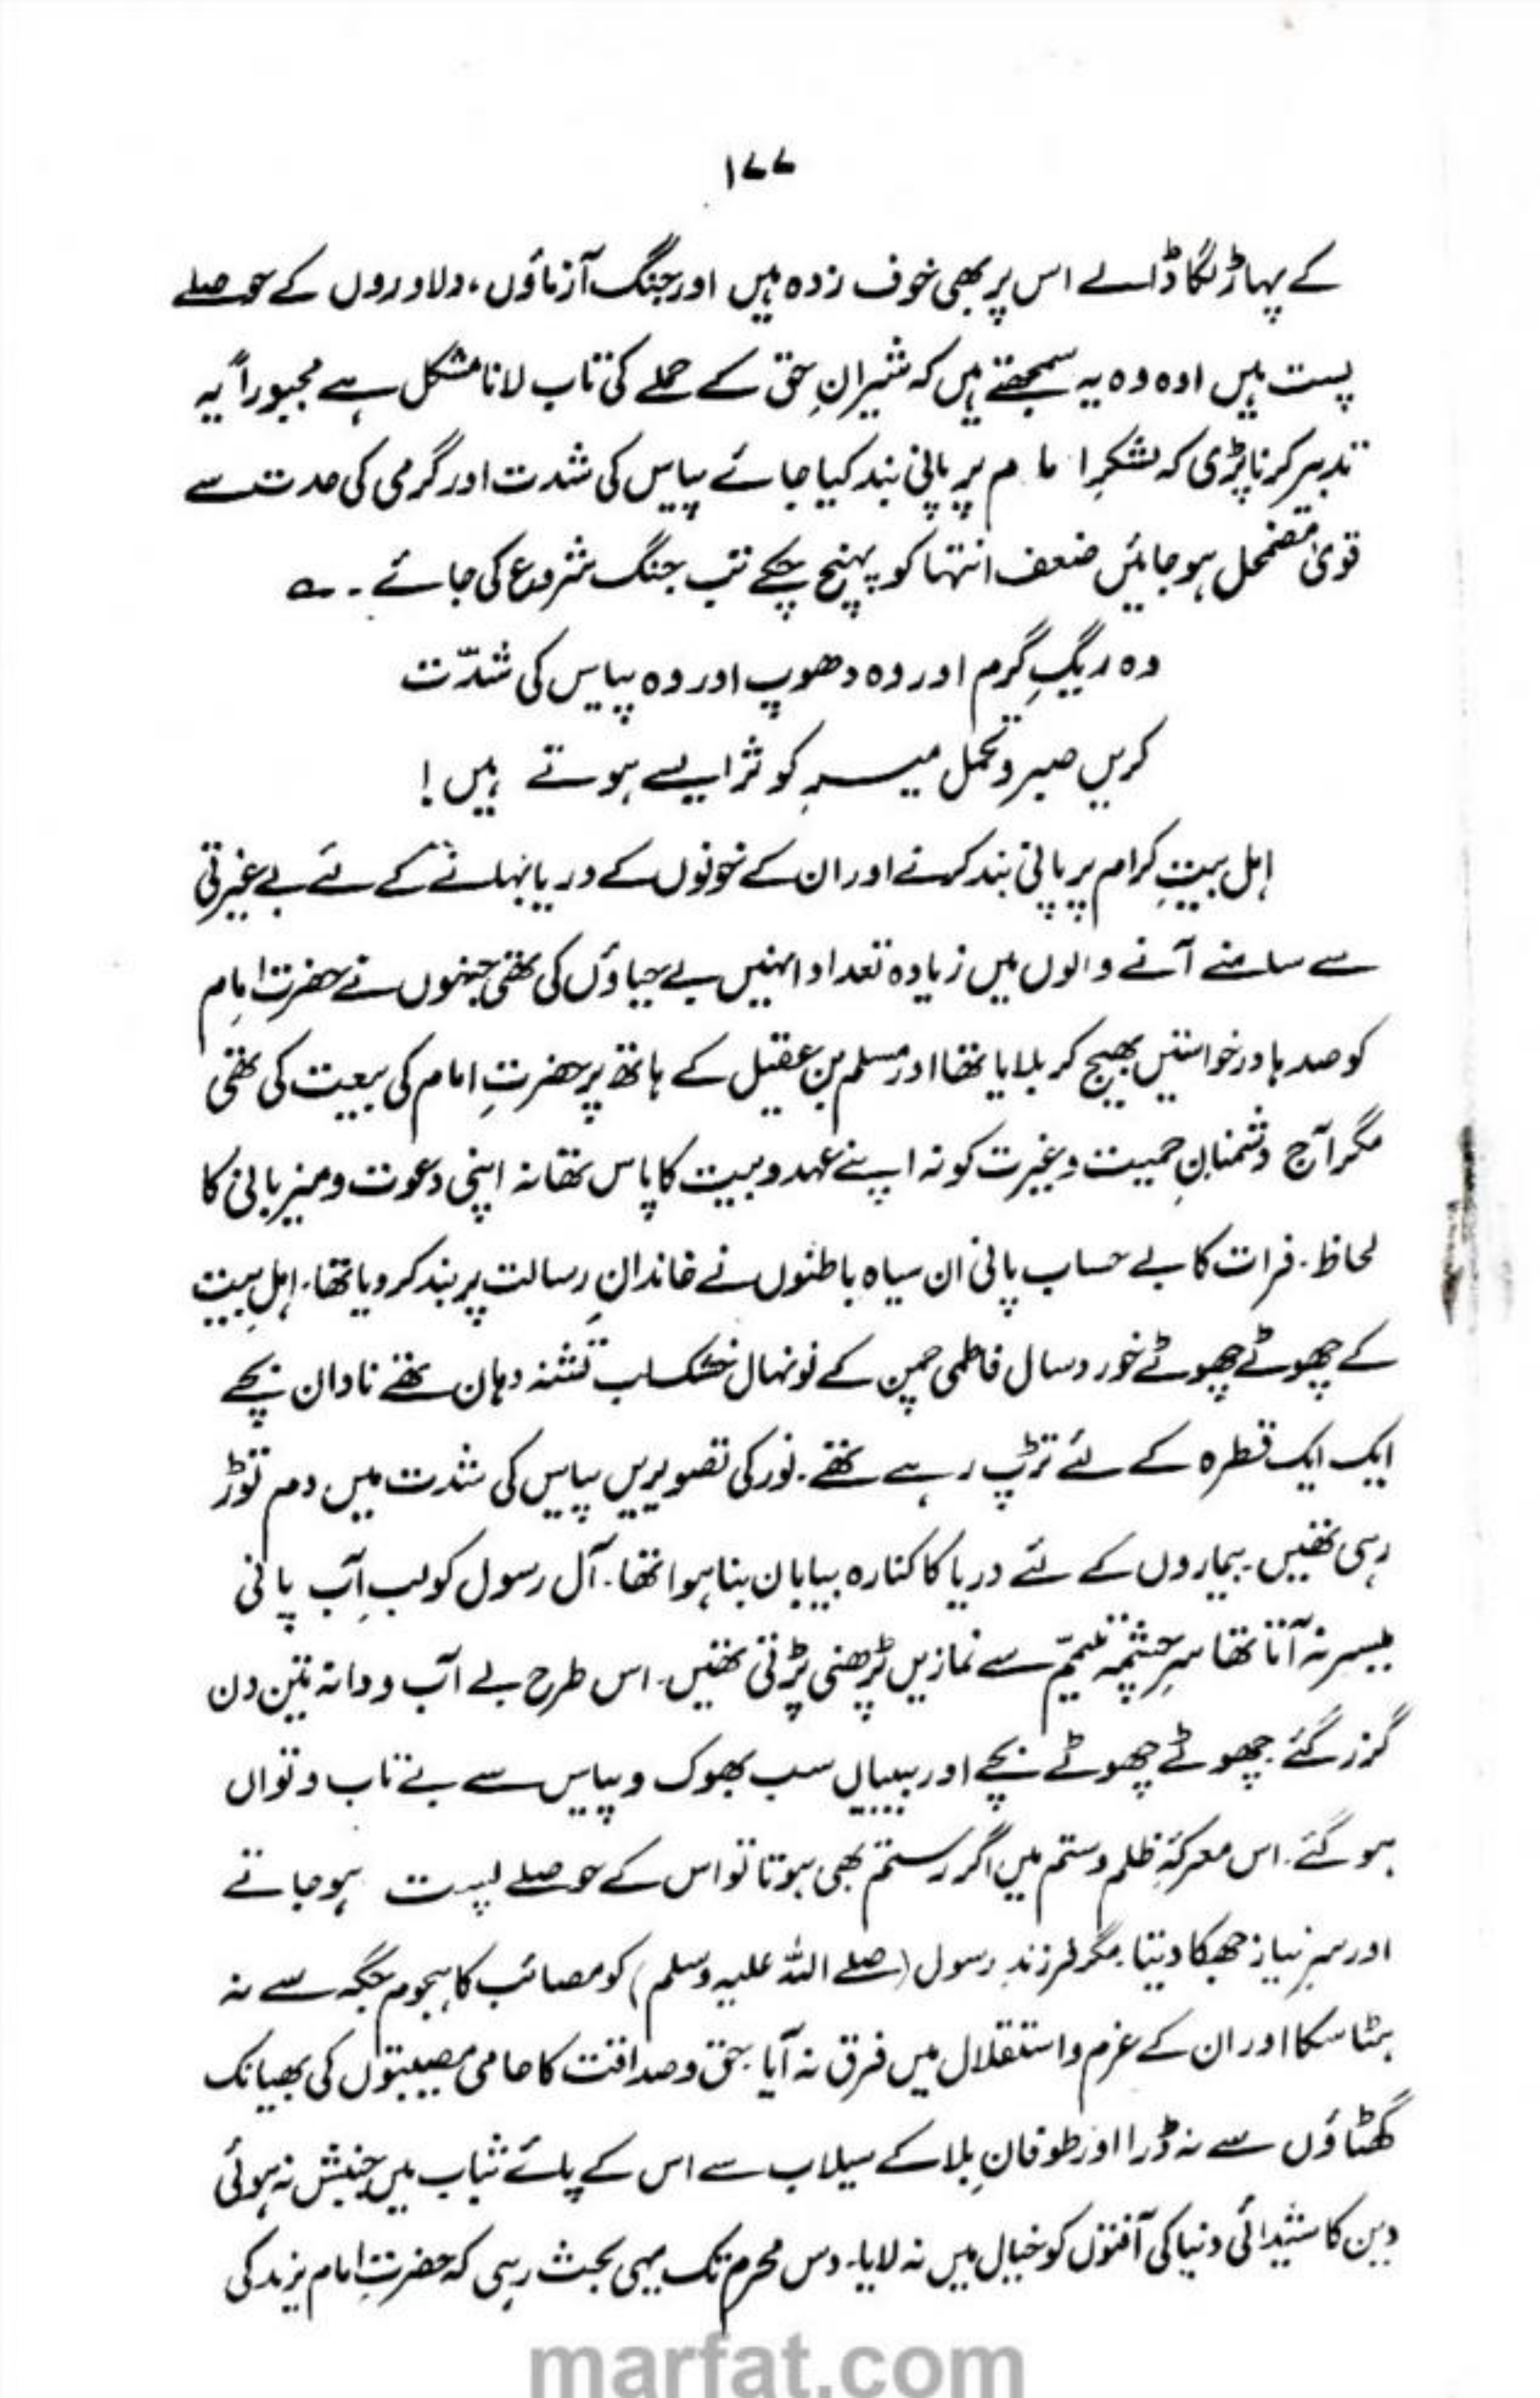 ۱۷۷
کے پہاڑ لگا ڈالے اس پر بھی خوف زدہ ہیں اور جنگ آزماؤں، دلاوروں کے حوصلے
پست ہیں اوہ وہ یہ سمجھتے ہیں کہ شیرانِ حق کے حملے کی تاب لانا مشکل ہے مجبوراً یہ
تدبیر کرنا پڑی کہ لشکرِ امام پر پانی بند کیا جائے پیاس کی شدت اور گرمی کی حدت سے
قویٰ مضمحل ہو جائیں ضعف انتہا کو پہنچ چکے تب جنگ شروع کی جائے ۔ ؎
وہ ریگِ گرم اور وہ دھوپ اور وہ پیاس کی شدّت
کریں صبر و تحمل میرِ کوثر ایسے ہوتے ہیں !
اہل بیتِ کرام پر پانی بند کرنے اور ان کے خونوں کے دریا بہانے کے لئے بے غیرتی
سے سامنے آنے والوں میں زیادہ تعداد انہیں بے حیاؤں کی تھی جنہوں نے حضرت امام
کو صدہا درخواستیں بھیج کر بلایا تھا اور مسلم بن عقیل کے ہاتھ پر حضرتِ امام کی بیعت کی تھی
مگر آج دشمنانِ حمیت و غیرت کو نہ اپنے عہد و بیت کا پاس تھا نہ اپنی دعوت و میزبانی کا
لحاظ۔ فرات کا بے حساب پانی ان سیاہ باطنوں نے خاندانِ رسالت پر بند کر دیا تھا۔ اہلِ بیت
کے چھوٹے چھوٹے خورد سال فاطمی چمن کے نونہال خشک لب تشنہ دہان تھے نادان بچے
ایک ایک قطرہ کے لئے تڑپ رہے تھے۔ نور کی تصویریں پیاس کی شدت میں دم توڑ
رہی تھیں۔ بیماروں کے لئے دریا کا کنارہ بیابان بنا ہوا تھا۔ آل رسول کو لبِ آب پانی
میسر نہ آتا تھا سرِ چشمہ تیمّم سے نمازیں پڑھنی پڑتی تھیں۔ اس طرح بے آب و دانہ تین دن
گزر گئے۔ چھوٹے چھوٹے بچے اور بیبیاں سب بھوک و پیاس سے بے تاب و تواں
ہو گئے۔ اس معرکۂ ظلم و ستم میں اگر رستم بھی ہوتا تو اس کے حوصلے پست ہو جاتے
اور سرِ نیاز جھکا دیتا۔ مگر فرزندِ رسول (صلے اللہ علیہ وسلم) کو مصائب کا ہجوم جگہ سے نہ
ہٹا سکا اور ان کے عزم و استقلال میں فرق نہ آیا۔ حق و صداقت کا حامی مصیبتوں کی بھیانک
گھٹاؤں سے نہ ڈرا اور طوفانِ بلا کے سیلاب سے اس کے پائے ثبات میں جنبش نہ ہوئی
دین کا شیدائی دنیا کی آفتوں کو خیال میں نہ لایا۔ دس محرم تک یہی بحث رہی کہ حضرتِ امام یزید کی
marfat.com